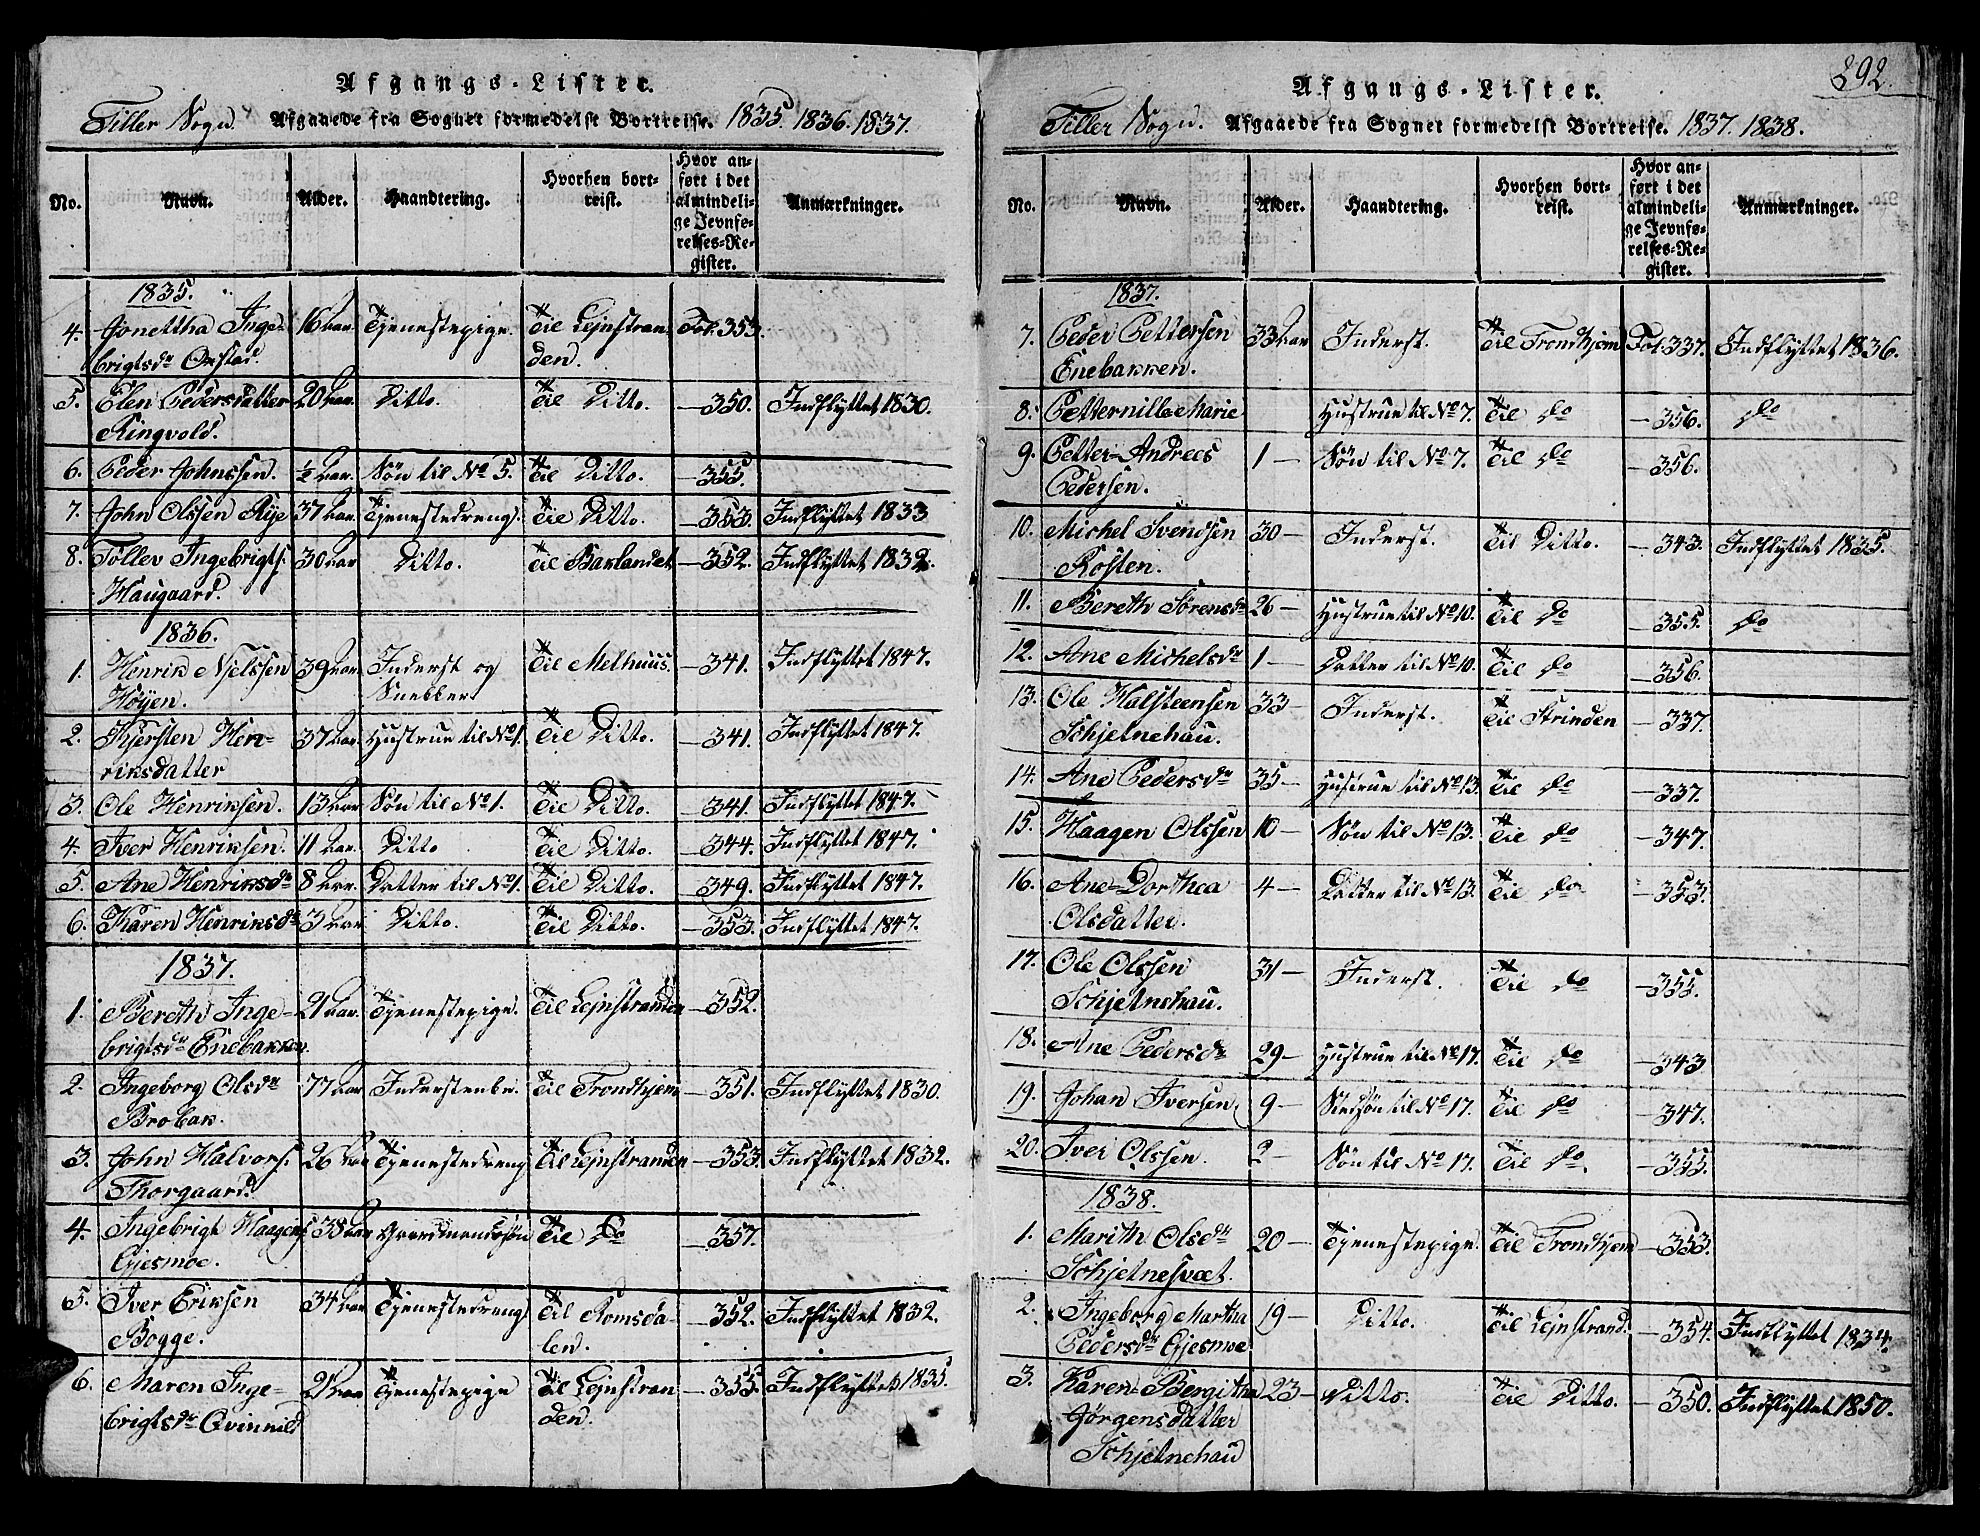 Afgangs-Lister.
Tiller Sogn. Afgaaede fra Sognet formedelst Bortreise. 1835. 1836. 1837.
No.
Navn.
Alder.
Haandtering.
Hvorhen bort-
reist.
Hvor an-
ført i det
almindeli-
ge Jevnfø-
relses-Re-
gister.
Anmærkninger.
1835.
4. Jonettha Inge- 16 Aar. Tjenestepige. Til Lejnstran- Fol. 353.
brigtsdr Oxstad. den.
5. Elen Pedersdatter 20 Aar. Ditto. Til Ditto. —350. Indflyttet 1830.
Ringvold.
6. Peder Johnssen. ½ Aar. Søn til No 5. Til Ditto. —355.
7. John Olssen Rye 37 Aar. Tjenestedreng. Til Ditto. —353. Indflyttet 1833
8. Tollev Ingebrigts. 30 Aar Ditto. Til Baklandet —352. Indflyttet 1832.
Haugaard.
1836.
1. Henrik Njelssen 39 Aar. Inderst og Til Melhuus. —341. Indflyttet 1847.
Høyen. Snedker
2. Kjersten Hen- 37 Aar. Hustrue til No 1. Til Ditto. —341. Indflyttet 1847.
riksdatter
3. Ole Henriksen. 13 Aar Søn til No 1. Til Ditto. —341. Indflyttet 1847.
4. Iver Henriksen. 11 Aar. Ditto Til Ditto. —344. Indflyttet 1847.
5. Ane Henriksdr 8 Aar. Datter til No 1. Til Ditto. —349. Indflyttet 1847.
6. Karen Henriksdr 3 Aar Ditto. Til Ditto. —353. Indflyttet 1847.
1837.
1. Bereth Inge- 21 Aar. Tjenestepige. Til Lejnstranden —352.
brigtsdr Enebakken.
2. Ingeborg Olsdr 77 Aar Til Trondhjem —351. Indflyttet 1830.
Brobak.
3. John Halvors. 26 Aar Tjenestedreng Til Lejnstranden —353. Indflyttet 1832.
Thorgaard.
4. Ingebrigt Haagens. 38 Aar Gaardmandssøn Til Do —357.
Gjesmoe.
5. Iver Eriksen 34 Aar Tjenestedreng Til Romsda- —352. Indflyttet 1832.
Bogge. len.
6. Maren Inge- 21 Aar Tjenestepige Til Lejnstran —355. Indflyttet 1835.
brigtsdr Qvinnild den.
292.
Afgangs-Lister.
Tiller Sogn. Afgaaede fra Sognet formedelst Bortreise. 1837. 1838.
No.
Navn.
Alder.
Haandtering.
Hvorhen bort-
reist.
Hvor an-
ført i det
almindeli-
ge Jevnfø-
relses-Re-
gister.
Anmærkninger.
1837.
7. Peder Pettersen 33 Aar Inderst. Til Trondhjem Fol. 337. Indflyttet 1836.
Enebakken.
8. Petternille Marie Hustrue til No 7. Til Do —356. Do
9. Petter Andreas 1— Søn til No 7. Til Do —356.
Pedersen.
10. Michel Svendsen 30— Inderst. Til Ditto. —343. Indflyttet 1835.
Rosten.
11. Bereth Sørensdr 26— Hustrue til No 10. Til Do —355. Do
12. Ane Michelsdr 1— Datter til No 10. Til Do —356.
13. Ole Halsteensen 33— Inderst. Til Strinden —337.
Schjetnehau.
14. Ane Pedersdr 35— Hustrue til No 13. Til Do —337.
15. Haagen Olssen 10— Søn til No 13. Til Do —347.
16. Ane Dorthea 4— Datter til No 13. Til Do —353.
Olsdatter.
17. Ole Olssen 31— Inderst. Til Do —355.
Schjetnehau.
18. Ane Pedersdr 29— Hustrue til No 17. Til Do —343
19. Johan Iversen 9— Stedsøn til No 17. Til Do —347.
20. Iver Olssen. 2— Søn til No 17. Til Do. —355.
1838.
1. Marith Olsdr 20— Tjenestepige. Til Trondhjem —353.
Schjetnesvæt.
2. Ingeborg Martha 19— Ditto. Til Lejnstrand. —354. Indflyttet 1834.
Pedersdr Gjesmoe
3. Karen Bergitha 23— Ditto. Til Ditto. —350. Indflyttet 1850.
Jørgensdatter
Schjetnehau